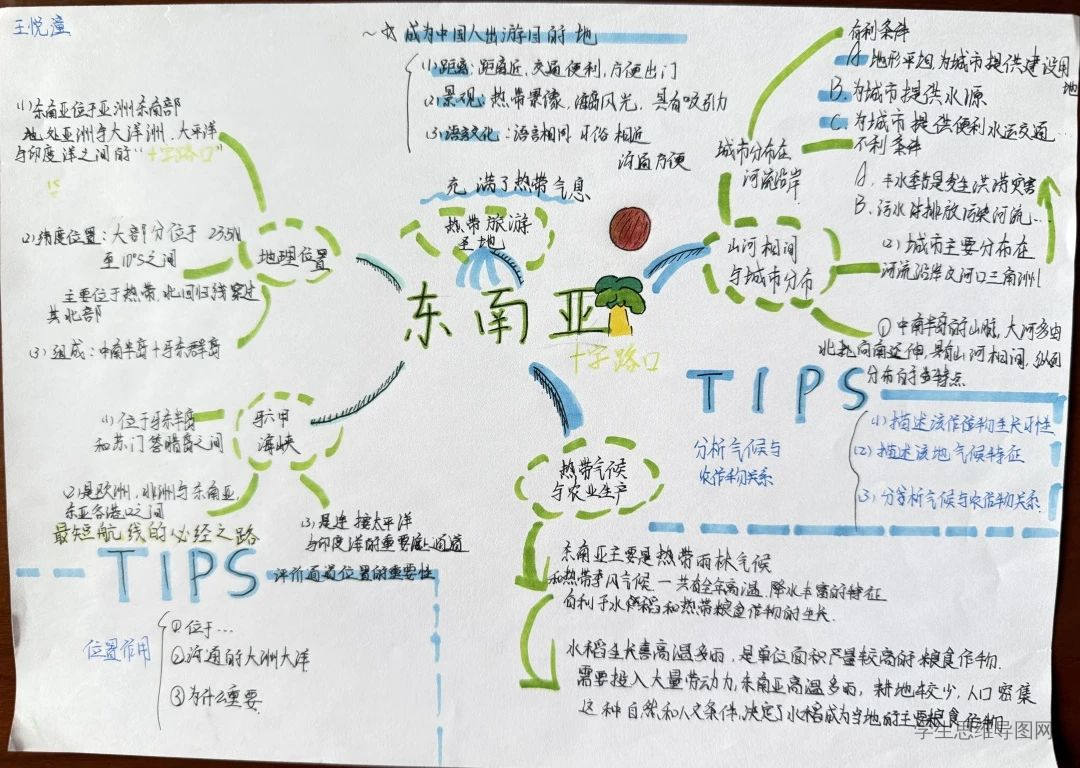 王悦潼
(1)东南亚位于亚洲东南部
地处亚洲与大洋洲、太平洋
与印度洋之间的"十字路口"
(2)纬度位置:大部分位于23.5N
至10°S之间
主要位于热带,北回归线穿过
其北部
(3)组成:中南半岛+马来群岛
地理位置
成为中国人出游目的地
(1)距离:距离近,交通便利,方便出门
(2)景观:热带景像,海岛风光,具有吸引力
(3)语言文化:语言相同 习俗相近
沟通方便
充满了热带气息
热带旅游
圣地
有利条件
A.地形平坦为城市提供建设用
地
B.为城市提供水源
C.为城市提供便利水运交通...
城市分布在
河流沿岸
不利条件
A.丰水季易发生洪涝灾害
B.污水排放污染河流...
(2)城市主要分布在
河流沿岸及河口三角洲
山河相间
与城市分布
①中南半岛的山脉,大河多由
北向南延伸,具有山河相间,纵列
分布的特点
东南亚
十字路口
马六甲
海峡
(1)位于马来半岛
和苏门答腊岛之间
(2)是欧洲,非洲与东南亚,
东亚各港口之间
最短航线的必经之路
(3)是连接太平洋
与印度洋的重要海上通道
TIPS
评价通道位置的重要性
位置作用
①位于...
②沟通的大洲大洋
③为什么重要
TIPS
分析气候与
农作物关系
(1)描述该作物生长习性
(2)描述该地气候特征
(3)分析气候与农作物关系
热带气候
与农业生产
东南亚主要是热带雨林气候
和热带季风气候.一共有全年高温.降水丰富的特征
有利于水稻和热带粮食作物的生长.
水稻生长喜高温多雨,是单位面积产量较高的粮食作物.
需要投入大量劳动力,东南亚高温多雨,耕地较少,人口密集
这种自然和人文条件,决定了水稻成为当地的主要粮食作物
学生思维导图网